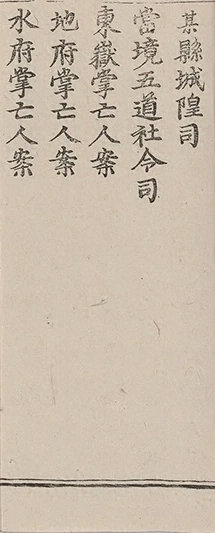 某縣城隍司
當境五道社令司
東嶽掌亡人案
地府掌亡人案
水府掌亡人案